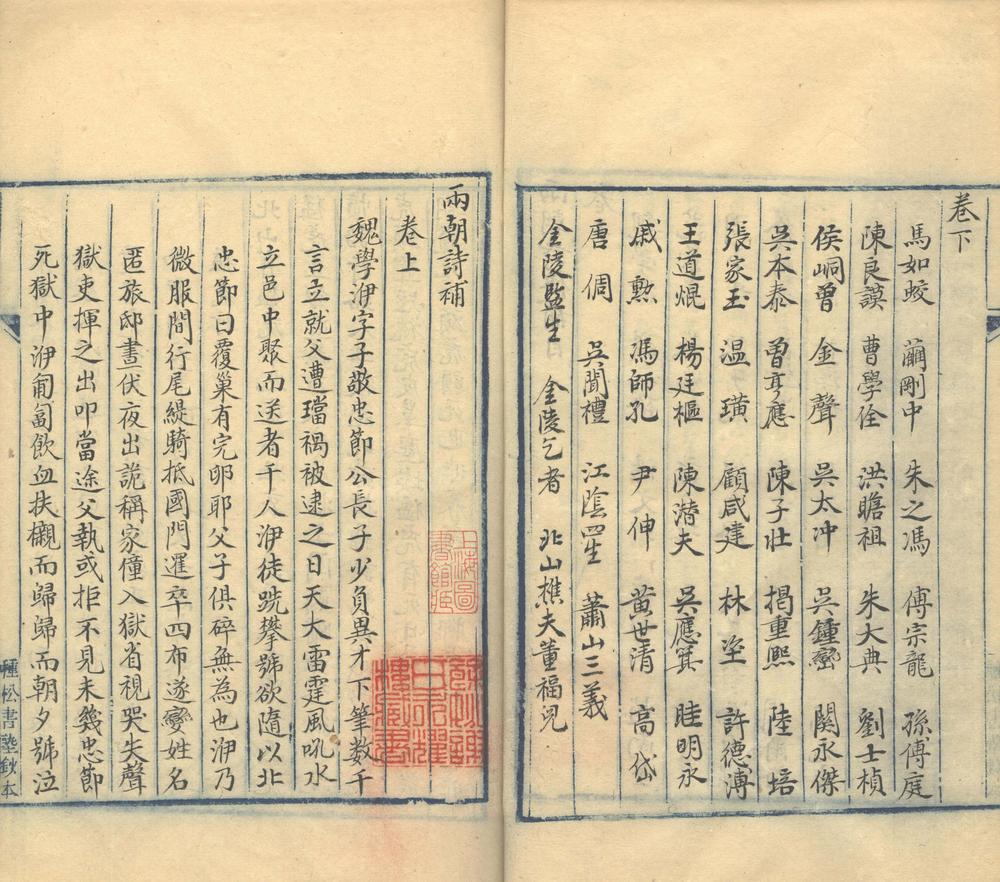 卷下
馬如蛟 繭剛中 朱之馮 傅宗龍 孫傅庭
陳良謨 曹學佺 洪瞻祖 朱大典 劉士楨
侯峒曾 金聲 吳太冲 吳鍾巒 關永傑
吳本泰 曾亨應 陳子壯 揭重熙 陸培
張家玉 温璜 顧咸建 林垐 許德溥
王道焜 楊廷樞 陳潜夫 吳應箕 眭明永
戚勲 馮師孔 尹伸 黃世清 高岱
唐倜 吳聞禮 江陰四生 蕭山三義
金陵監生 金陵乞者 北山樵夫董福兒
兩朝詩補
卷上
魏學洢字子敬忠節公長子少負異才下筆數千
言立就父遭璫禍被逮之日天大雷霆風吼水
立邑中聚而送者千人洢徒跣攀號欲隨以北
忠節曰覆巢有完卵耶父子俱碎無為也洢乃
微服間行尾緹騎抵國門邏卒四布遂變姓名
匿旅邸晝伏夜出詭稱家僮入獄省視哭失聲
獄吏揮之出叩當途父執或拒不見未幾忠節
死獄中洢匍匐飲血扶櫬而歸歸而朝夕號泣
種松書塾鈔本
上海圖書館藏